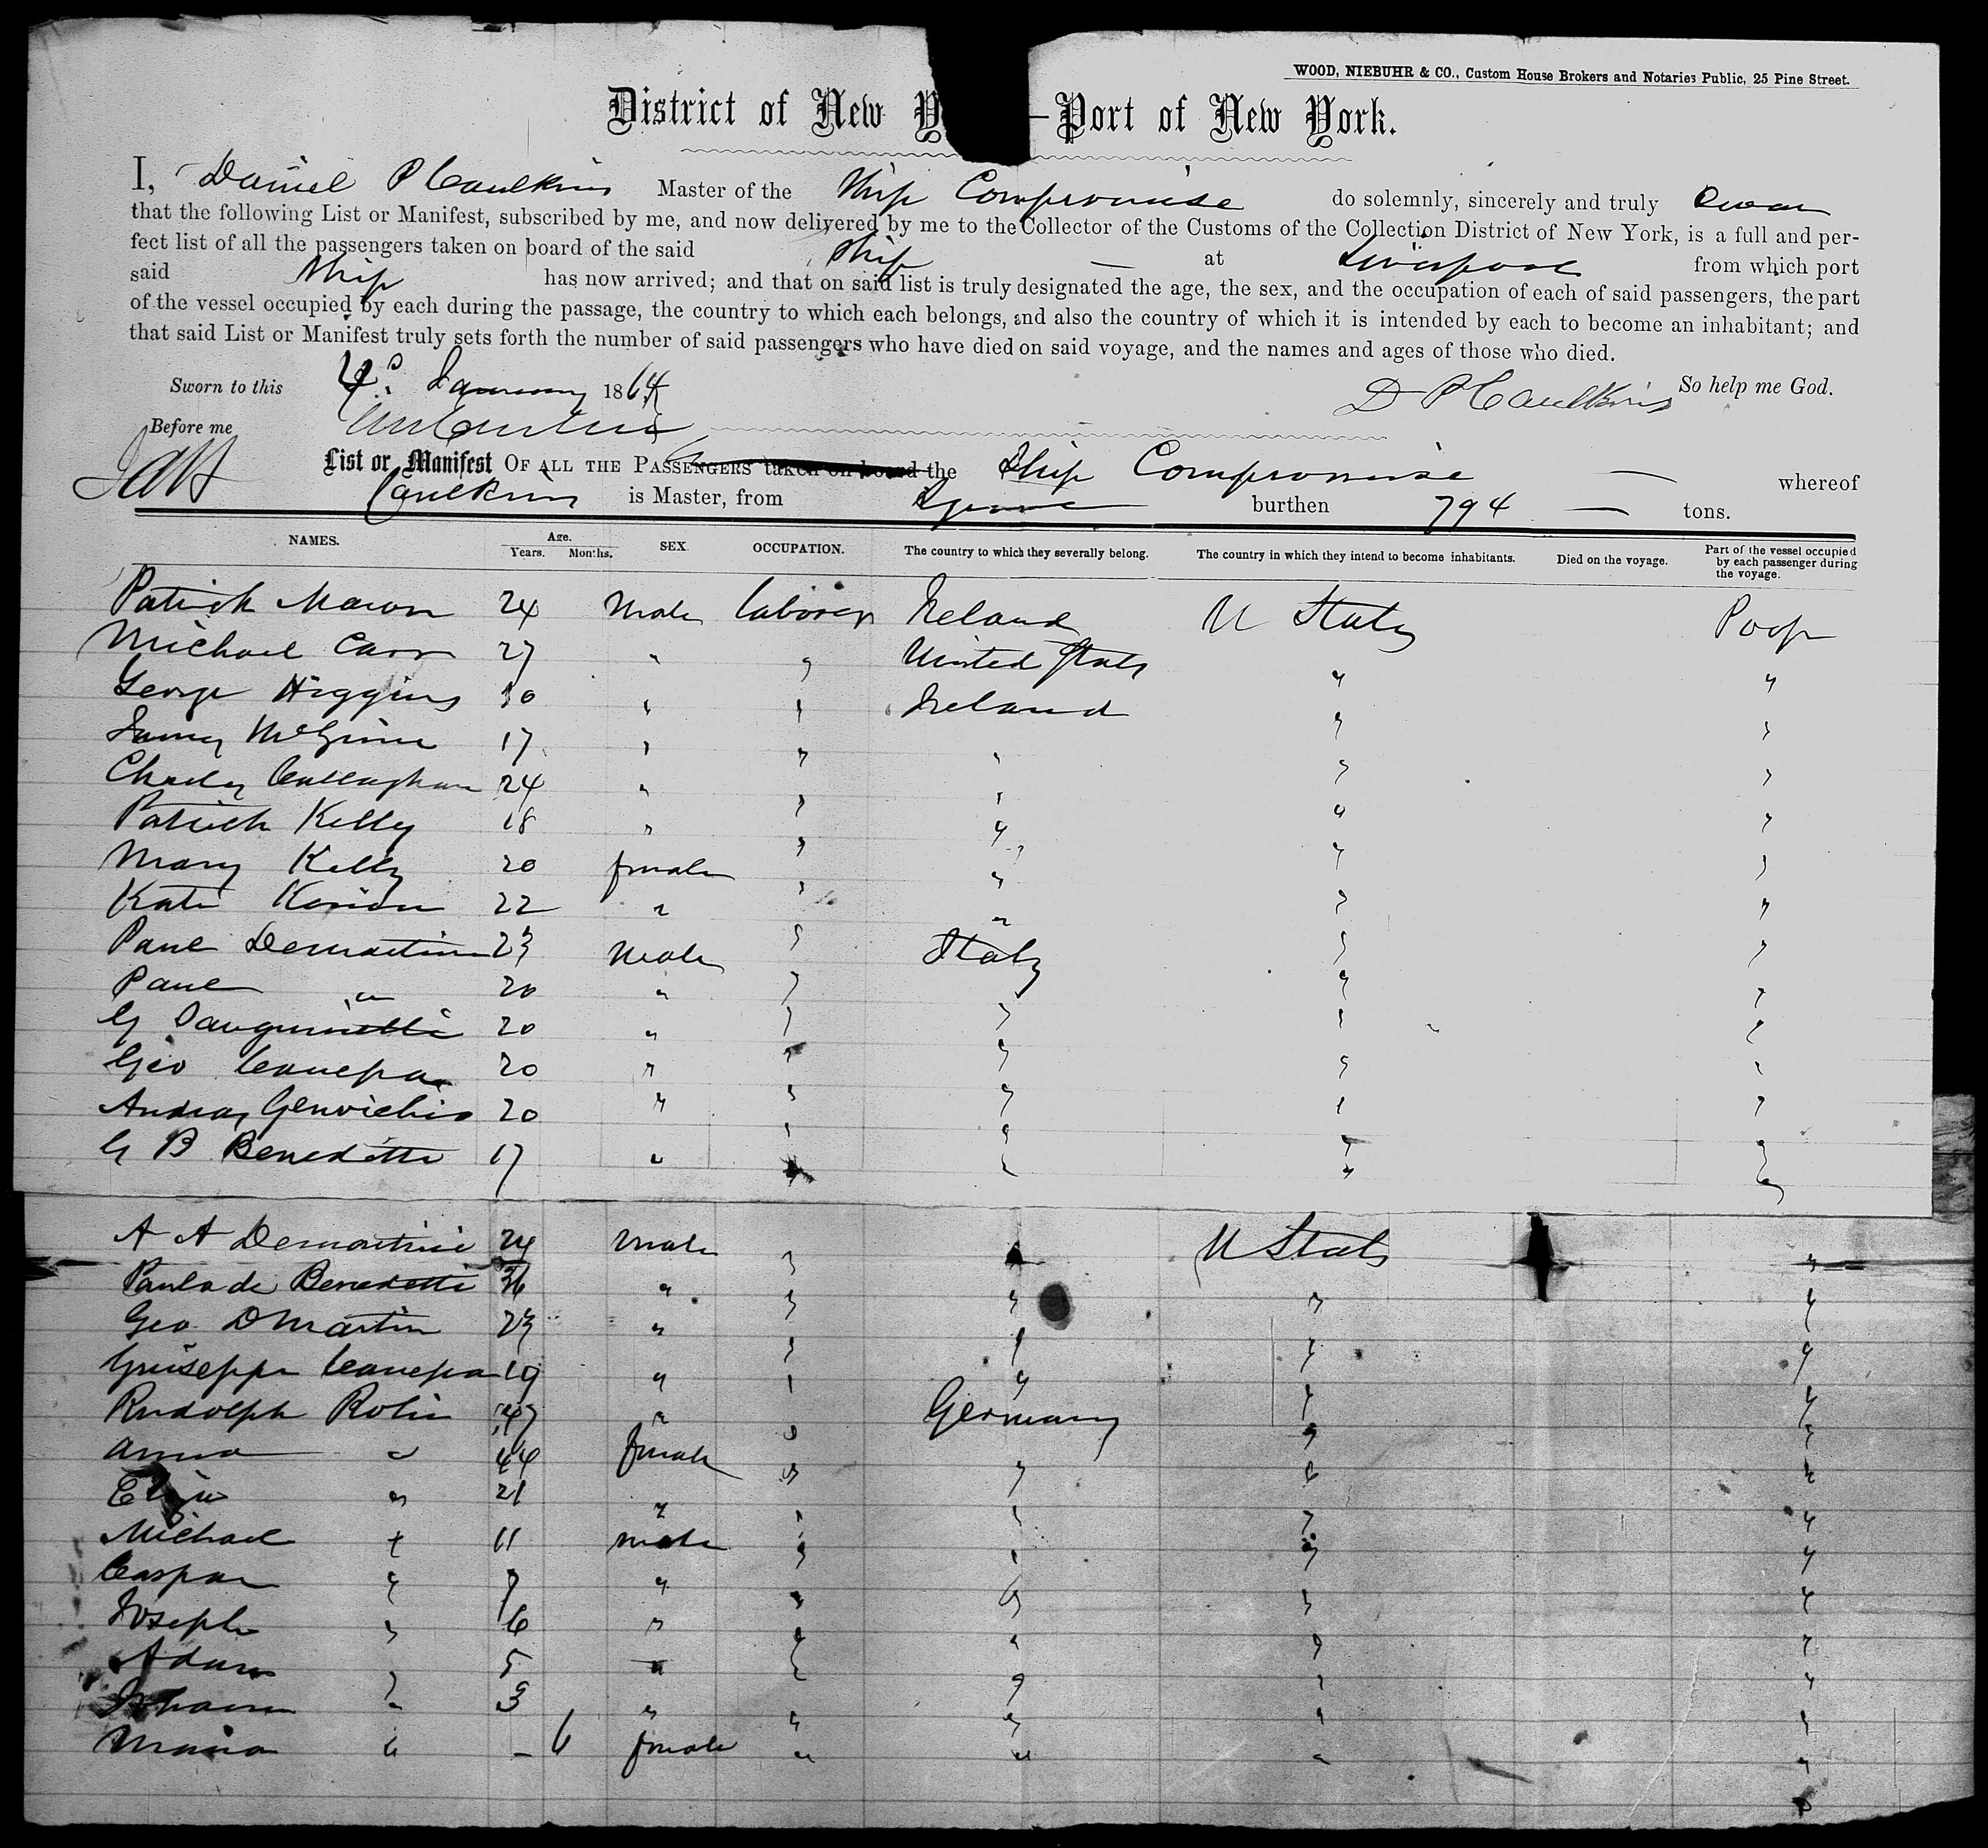 WOOD, NIEBUHR & CO., Custom House Brokers and Notaries Public, 25 Pine Street.
District of New Y —Port of New York.
I, Daniel P Caulkins Master of the Ship Compromise do solemnly, sincerely and truly Swear
that the following List or Manifest, subscribed by me, and now delivered by me to the Collector of the Customs of the Collection District of New York, is a full and per-
fect list of all the passengers taken on board of the said Ship — at Liverpool from which port
said Ship has now arrived; and that on said list is truly designated the age, the sex, and the occupation of each of said passengers, the part
of the vessel occupied by each during the passage, the country to which each belongs, and also the country of which it is intended by each to become an inhabitant; and
that said List or Manifest truly sets forth the number of said passengers who have died on said voyage, and the names and ages of those who died.
Sworn to this January 1864 So help me God.
D P Caulkins
Before me
List or Manifest OF ALL THE PASSENGERS taken on board the Ship Compromise — whereof
Caulkins is Master, from burthen 794 — tons.
NAMES. Age. Years. Months. SEX. OCCUPATION. The country to which they severally belong. The country in which they intend to become inhabitants. Died on the voyage. Part of the vessel occupied by each passenger during the voyage.
Patrick 24 Male laborer Ireland U States Poop
Michael Carr 27 " " United States " "
George Higgins " " Ireland " "
James McGinn 17 " " " " "
Charles Callaghan 24 " " " " "
Patrick Kelly 18 " " " " "
Mary Kelly 20 female " " " "
Kate 22 " " " " "
Paul Demartini 23 Male " Italy " "
Paul " 20 " " " " "
G Sanguinetti 20 " " " " "
Geo Canepa 20 " " " " "
Andreas 20 " " " " "
G B Benedetti 17 " " " " "
A A Demartini 24 male " " U States "
Paulo de Benedetti 36 " " " " "
Geo DMartin 23 " " " " "
Guiseppe Canepa 19 " " " " "
Rudolph Robin 47 " " Germany " "
Anna " 44 female " " " "
" 21 " " " " "
Michael " 11 male " " " "
Caspar " 9 " " " " "
Joseph " 6 " " " " "
Adam " 5 " " " " "
Johann " 3 " " " " "
Maria " – 6 female " " " "